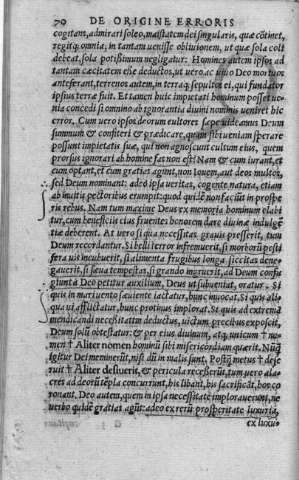 70 DE ORIGINE ERRORIS
cogitam, admirari soleo, maiestatem dei singularis, quæ cōtinet,
regitq; omnia, in tantam uenisse obliuionem, ut quæ sola coli
debeat, sola potissimum negligatur: Homines autem ipsos ad
tantam cæcitatem esse deductos, ut uero, ac uiuo Deo mortuos
anteferant, terrenos autem, in terraq; sepultos ei, qui fundator
ipsius terræ fuit. Et tamen huic impietati hominum posset ue-
nia concedi si omnino ab ignorantia diuini nominis ueniret hic
error. Cum uero ipsos deorum cultores sæpe uideamus Deum
summum & confiteri & prædicare, quam sibi ueniam sperare
possunt impietatis suæ, qui non agnoscunt cultum eius, quem
prorsus ignorari ab homine fas non est? Nam & cum iurant, et
cum optant, et cum gratias agunt, non Iouem, aut deos multos,
sed Deum nominant: adeo ipsa ueritas, cogente natura, etiam
ab inuitis pectoribus erumpit: quod quidē non faciūt in prospe-
ris rebus. Nam tum maxime Deus ex memoria hominum elabi
tur, cum beneficiis eius fruentes honorem dare diuinæ indulgē
tiæ deberent. At uero si qua necessitas grauis presserit, tum
Deum recordantur. Si belli terror infremuerit, si morborū pesti
fera uis incubuerit, si alimenta frugibus longa siccitas dene-
gauerit, si sæua tempestas, si grando ingruerit, ad Deum confu
giunt, à Deo petitur auxilium, Deus ut subueniat, oratur. Si
quis in mari uento sæuiente iactatur, hunc inuocat. Si quis ali-
qua ui afflictatur, hunc protinus implorat. Si quis ad extremā
mendicandi necessitatem deductus, uictum precibus exposcit,
Deum solū obtestatur, & per eius diuinum, atq; unicum † no-
men † Aliter nomen hominū sibi misericordiam quærit. Nūq̄
igitur Dei meminerūt, nisi dū in malis sunt. Postq̄ metus † dese
ruit † Aliter desluerit, & pericula recesserūt, tum uero ala-
cres ad deorū tēpla concurrunt, his libant, his sacrificāt, hos co
ronant. Deo autem, quem in ipsa necessitate implorauerunt, ne
uerbo quidē gratias agūt: adeo ex rerū prosperitate luxuria,
ex luxu-